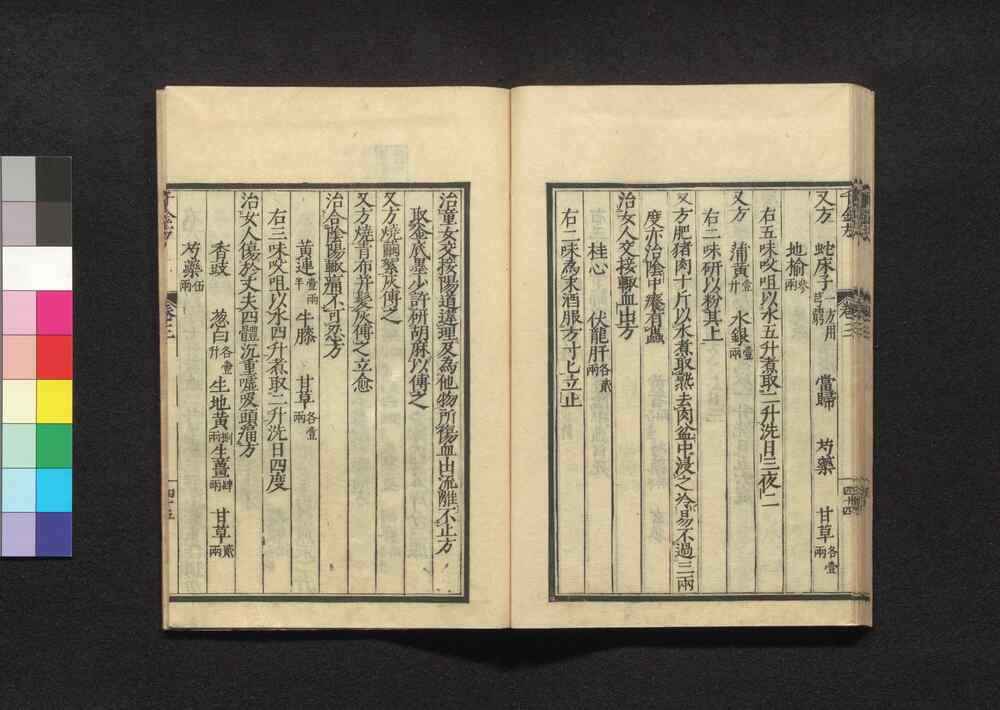 又方 蛇床子一方用芎藭 當歸 芍藥 甘草各壹兩
地榆叁兩
右五味㕮咀以水五升煮取二升洗日三夜二
又方 蒲黃壹升 水銀壹兩
右二味研以粉其上
又方肥猪肉十斤以水煮取熟去肉盆中浸之冷易不過三兩
度亦治陰中痒有蟲
治女人交接輒血出方
桂心 伏龍肝各貳兩
右二味為末酒服方寸匕立止
卷三
四十四
治童女交接陽道違理及為他物所傷血出流離不止方
取釜底墨少許研胡麻以傅之
又方燒繭絮灰傅之
又方燒青布并髮灰傅之立愈
治合陰陽輒痛不可忍方
黃連壹兩半 牛膝 甘草各壹兩
右三味㕮咀以水四升煮取二升洗日四度
治女人傷於丈夫四體沉重噓吸頭痛方
香豉 葱白各壹升 生地黃捌兩 生薑肆兩 甘草貳兩
芍藥伍兩
卷三
四十五